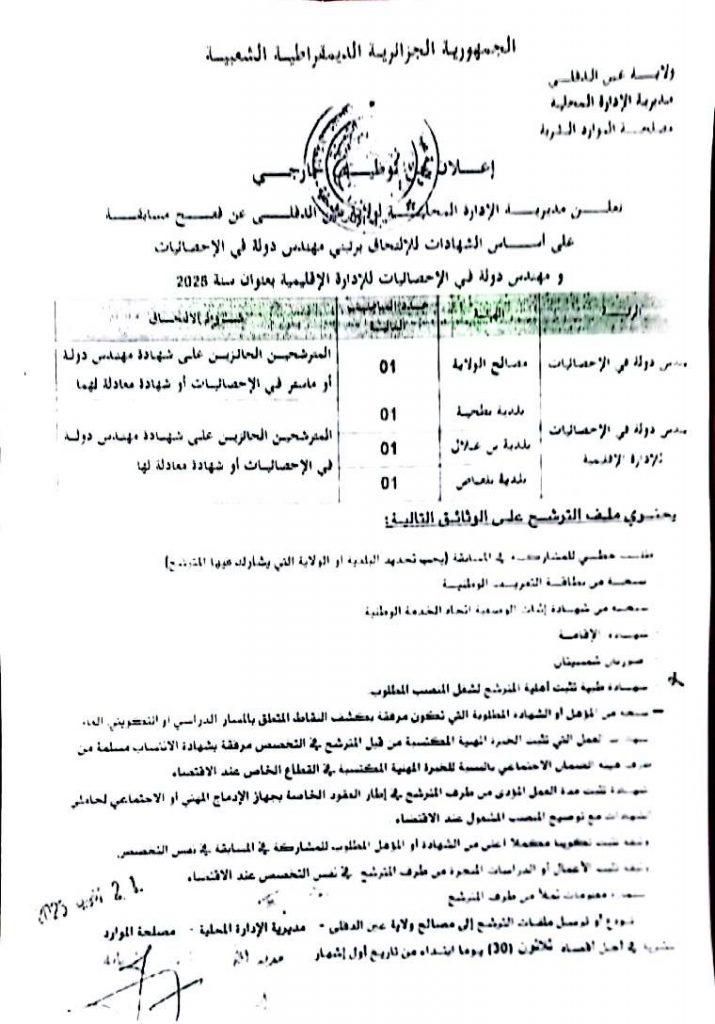 الجمهورية الجزائرية الديمقراطية الشعبية
ولاية عين الدفلى
مديرية الإدارة المحلية
مصلحة الموارد البشرية
إعلان عن توظيف خارجي
تعلن مديرية الإدارة المحلية لولاية عين الدفلى عن فتح مسابقة
على أساس الشهادات للإلتحاق برتبتي مهندس دولة في الإحصائيات
و مهندس دولة في الإحصائيات للإدارة الإقليمية بعنوان سنة
الرتبة الهيئة عدد المناصب المالية شروط الالتحاق
مهندس دولة في الإحصائيات مصالح الولاية 01 المترشحين الحائزين على شهادة مهندس دولة
أو ماستر في الإحصائيات أو شهادة معادلة لهما
مهندس دولة في الإحصائيات للإدارة الإقليمية بلدية بطحية 01 المترشحين الحائزين على شهادة مهندس دولة
في الإحصائيات أو شهادة معادلة لها
بلدية بن علال 01
بلدية 01
يحتوي ملف الترشح على الوثائق التالية:
طلب خطي للمشاركة في المسابقة (يجب تحديد البلدية او الولاية التي يشارك فيها المترشح)
نسخة من بطاقة التعريف الوطنية
نسخة من شهادة إثبات الوضعية اتجاه الخدمة الوطنية
شهادة الإقامة
صورتان شمسيتان
شهادة طبية تثبت أهلية المترشح لشغل المنصب المطلوب
– نسخة من المؤهل أو الشهادة المطلوبة التي تكون مرفقة بكشف النقاط المتعلق بالمسار الدراسي او التكويني
شهادات العمل التي تثبت الخبرة المهنية المكتسبة من قبل المترشح في التخصص مرفقة بشهادة الانتساب مسلمة من
طرف هيئة الضمان الاجتماعي بالنسبة للخبرة المهنية المكتسبة في القطاع الخاص عند الاقتضاء
شهادة تثبت مدة العمل المؤدى من طرف المترشح في إطار العقود الخاصة بجهاز الإدماج المهني أو الاجتماعي لحاملي
الشهادات مع توضيح المنصب المشغول عند الاقتضاء
وثيقة تثبت تكوينا مكملا أعلى من الشهادة او المؤهل المطلوب للمشاركة في المسابقة في نفس التخصص
وثيقة تثبت الأعمال أو الدراسات المنجزة من طرف المترشح في نفس التخصص عند الاقتضاء
معلومات تملأ من طرف المترشح
تودع او ترسل ملفات الترشح إلى مصالح ولاية عين الدفلى - مديرية الإدارة المحلية - مصلحة الموارد
البشرية في أجل أقصاه ثلاثون (30) يوما ابتداء من تاريخ أول إشهار